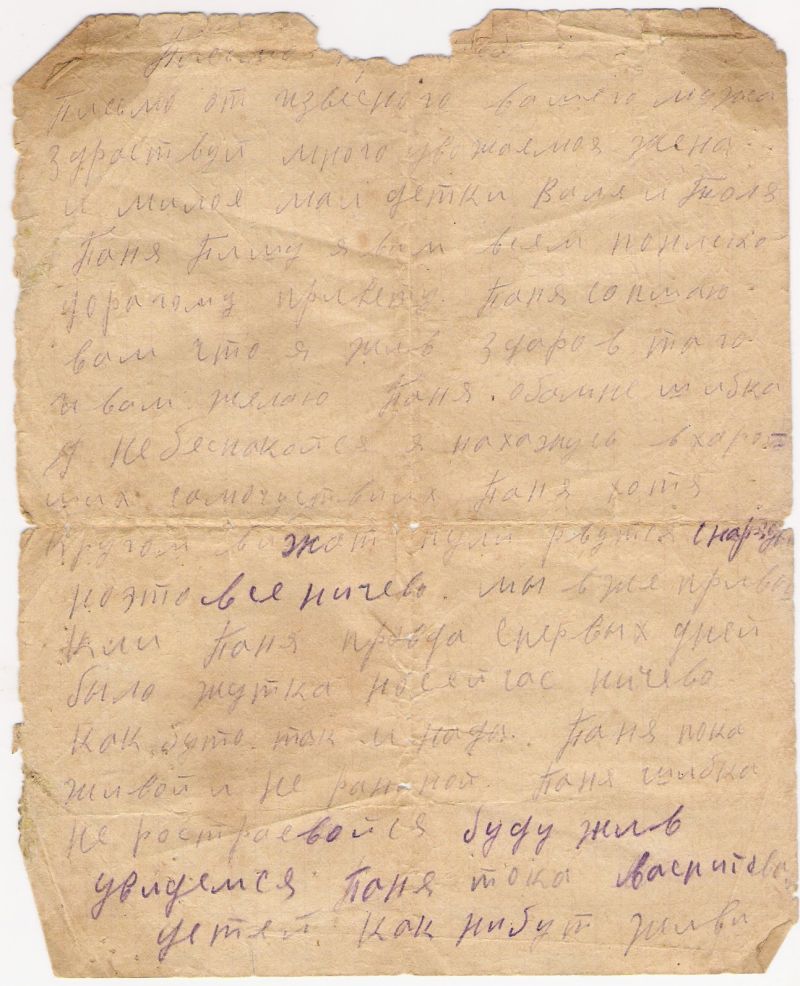 Письмо
Письмо от извесного вашего мужа
Здраствуй много уважаемоя жена
и милое маи детки Валя и Толя
Паня Пишу я вам всем пониско
дорагому привету. Паня сопшаю
вам что я жив здаров таго
и вам желаю Паня. обамне шибка
не беспакойся я нахажусь в харо
ших самочуствиих Паня хотя
кругом визжат пули рвутся снаряды
но это все ничево. мы вже привы
кли Паня правда спервых дней
было жутканосейчас ничево
как буто так и нада. Паня пока
живой и не раненой. Паня шибка
не ростраевойся буду жив
увидемся Паня тока васпитова
детей как нибут живи